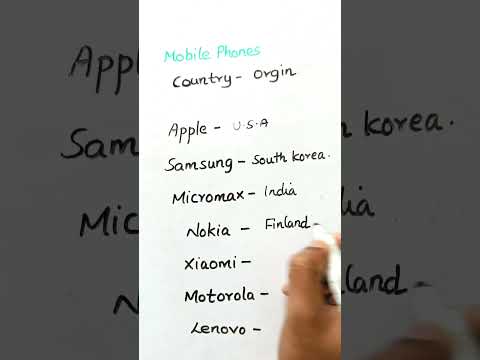 Mobile Phones
Country - Orgin
Apple - U.S.A
Samsung - South korea.
Micromax - India
Nokia - Finland -
Xiaomi -
Motorola -
Lenovo -